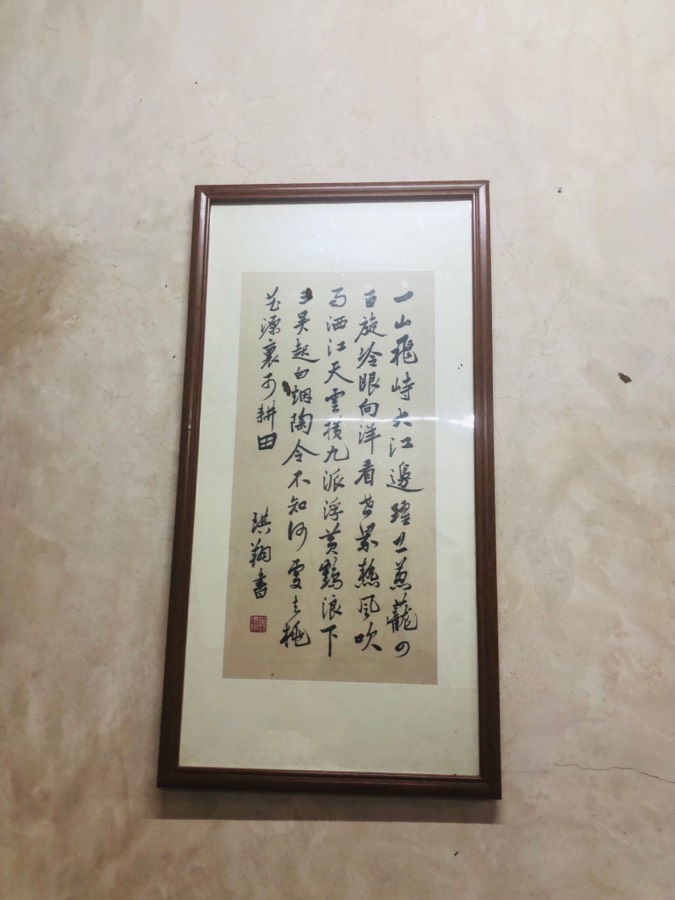 一山飛峙大江邊躍上葱蘢四
百旋冷眼向洋看世界熱風吹
雨洒江天雲横九派浮黄鶴浪下
三吴起白烟陶令不知何處去桃
花源裏可耕田
琪翔書